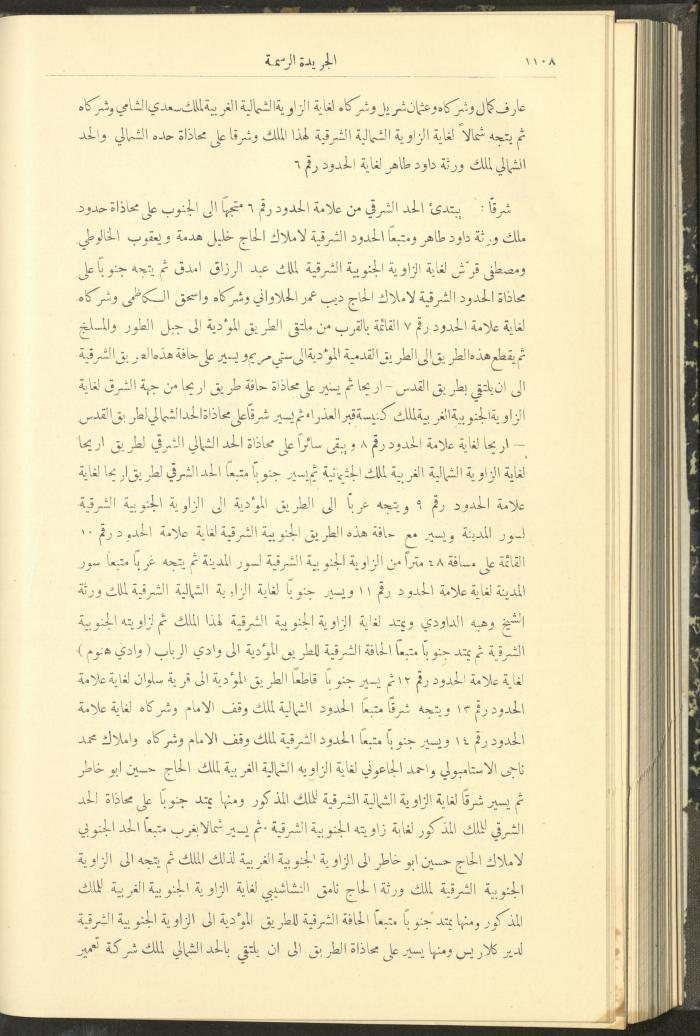 ١١٠٨
الجريدة الرسمية
عارف كمال وشركاه وعثمان شريل وشركاه لغاية الزاوية الشمالية الغربية لملك سعدي الشامي وشركاه
ثم يتجه شمالاً لغاية الزاوية الشمالية الشرقية لهذا الملك وشرقا على محاذاة حده الشمالي والحد
الشمالي لملك ورثة داود طاهر لغاية الحدود رقم ٦
شرقًا : يبتدئ الحد الشرقي من علامة الحدود رقم ٦ متجهًا الى الجنوب على محاذاة حدود
ملك ورثة داود طاهر ومتبعًا الحدود الشرقية لاملاك الحاج خليل هدمة ويعقوب الخالوطي
ومصطفى قرّش لغاية الزاوية الجنوبية الشرقية لملك عبد الرزاق امدق ثم يتجه جنوبًا على
محاذاة الحدود الشرقية لاملاك الحاج ديب عمر الحلاواني وشركاه واسحق الكاظمى وشركاه
لغاية علامة الحدود رقم ٧ القائمة بالقرب من ملتقى الطريق المؤدية الى جبل الطور والمسلخ
ثم يقطع هذه الطريق الى الطريق القدمية المؤدية الى ستي مريم ويسير على حافة هذه الطريق الشرقية
الى ان يلتقي بطريق القدس - اريحا ثم يسير على محاذاة حافة طريق اريحا من جهة الشرق لغاية
الزاوية الجنوبية الغربية لملك كنيسة قبر العذراء ثم يسير شرقًا على محاذاة الحد الشمالي لطريق القدس
— اريحا لغاية علامة الحدود رقم ٨ ويبقى سائراً على محاذاة الحد الشمالي الشرقي لطريق اريحا
لغاية الزاوية الشمالية الغربية لملك الجثمانية ثم يسير جنوبًا متبعًا الحد الشرقي لطريق اريحا لغاية
علامة الحدود رقم ٩ ويتجه غربًا الى الطريق المؤدية الى الزاوية الجنوبية الشرقية
لسور المدينة ويسير مع حافة هذه الطريق الجنوبية الشرقية لغاية علامة الحدود رقم ١٠
القائمة على مسافة ٤٨ متراً من الزاوية الجنوبية الشرقية لسور المدينة ثم يتجه غربًا متبعا سور
المدينة لغاية علامة الحدود رقم ١١ ويسير جنوبًا لغاية الزاوية الشمالية الشرقية لملك ورثة
الشيخ وهبه الداودي ويمتد لغاية الزاوية الجنوبية الشرقية لهذا الملك ثم لزاويته الجنوبية
الشرقية ثم يمتد جنوبًا متبعًا الحافة الشرقية للطريق المؤدية الى وادي الرباب ( وادي هنوم )
لغاية علامة الحدود رقم ١٢ ثم يسير جنوبًا قاطعًا الطريق المؤدية الى قرية سلوان لغاية علامة
الحدود رقم ١٣ ويتجه شرقًا متبعًا الحدود الشمالية لملك وقف الامام وشركاه لغاية علامة
الحدود رقم ١٤ ويسير جنوبًا متبعًا الحدود الشرقية لملك وقف الامام وشركاه واملاك محمد
ناجى الاستامبولي واحمد الجاعوني لغاية الزاويه الشمالية الغربية لملك الحاج حسين ابو خاطر
ثم يسير شرقًا لغاية الزاوية الشمالية الشرقية للملك المذكور ومنها يمتد جنوبًا على محاذاة الحد
الشرقي للملك المذكور لغاية زاويته الجنوبية الشرقية ثم يسير شمالا بغرب متبعًا الحد الجنوبي
لاملاك الحاج حسين ابو خاطر الى الزاوية الجنوبية الغربية لذلك الملك ثم يتجه الى الزاوية
الجنوبية الشرقية لملك ورثة الحاج نامق النشاشيبي لغاية الزاوية الجنوبية الغربية للملك
المذكور ومنها يمتد جنوبًا متبعًا الحافة الشرقية للطريق المؤدية الى الزاوية الجنوبية الشرقية
لدير كلاريس ومنها يسير على محاذاة الطريق الى ان يلتقي بالحد الشمالي لملك شركة تعمير